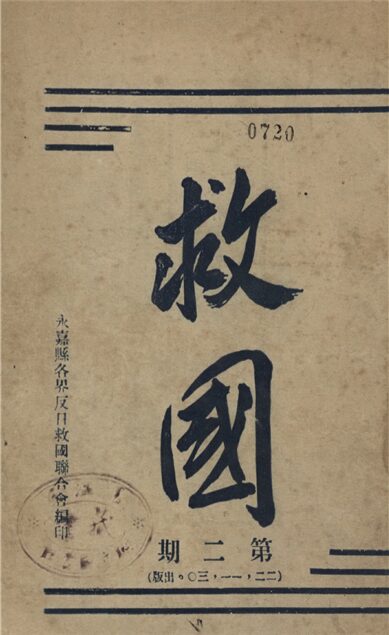 0720
救國
第二期
(二二，一一，三〇。出版)
永嘉縣各界反日救國聯合會編印